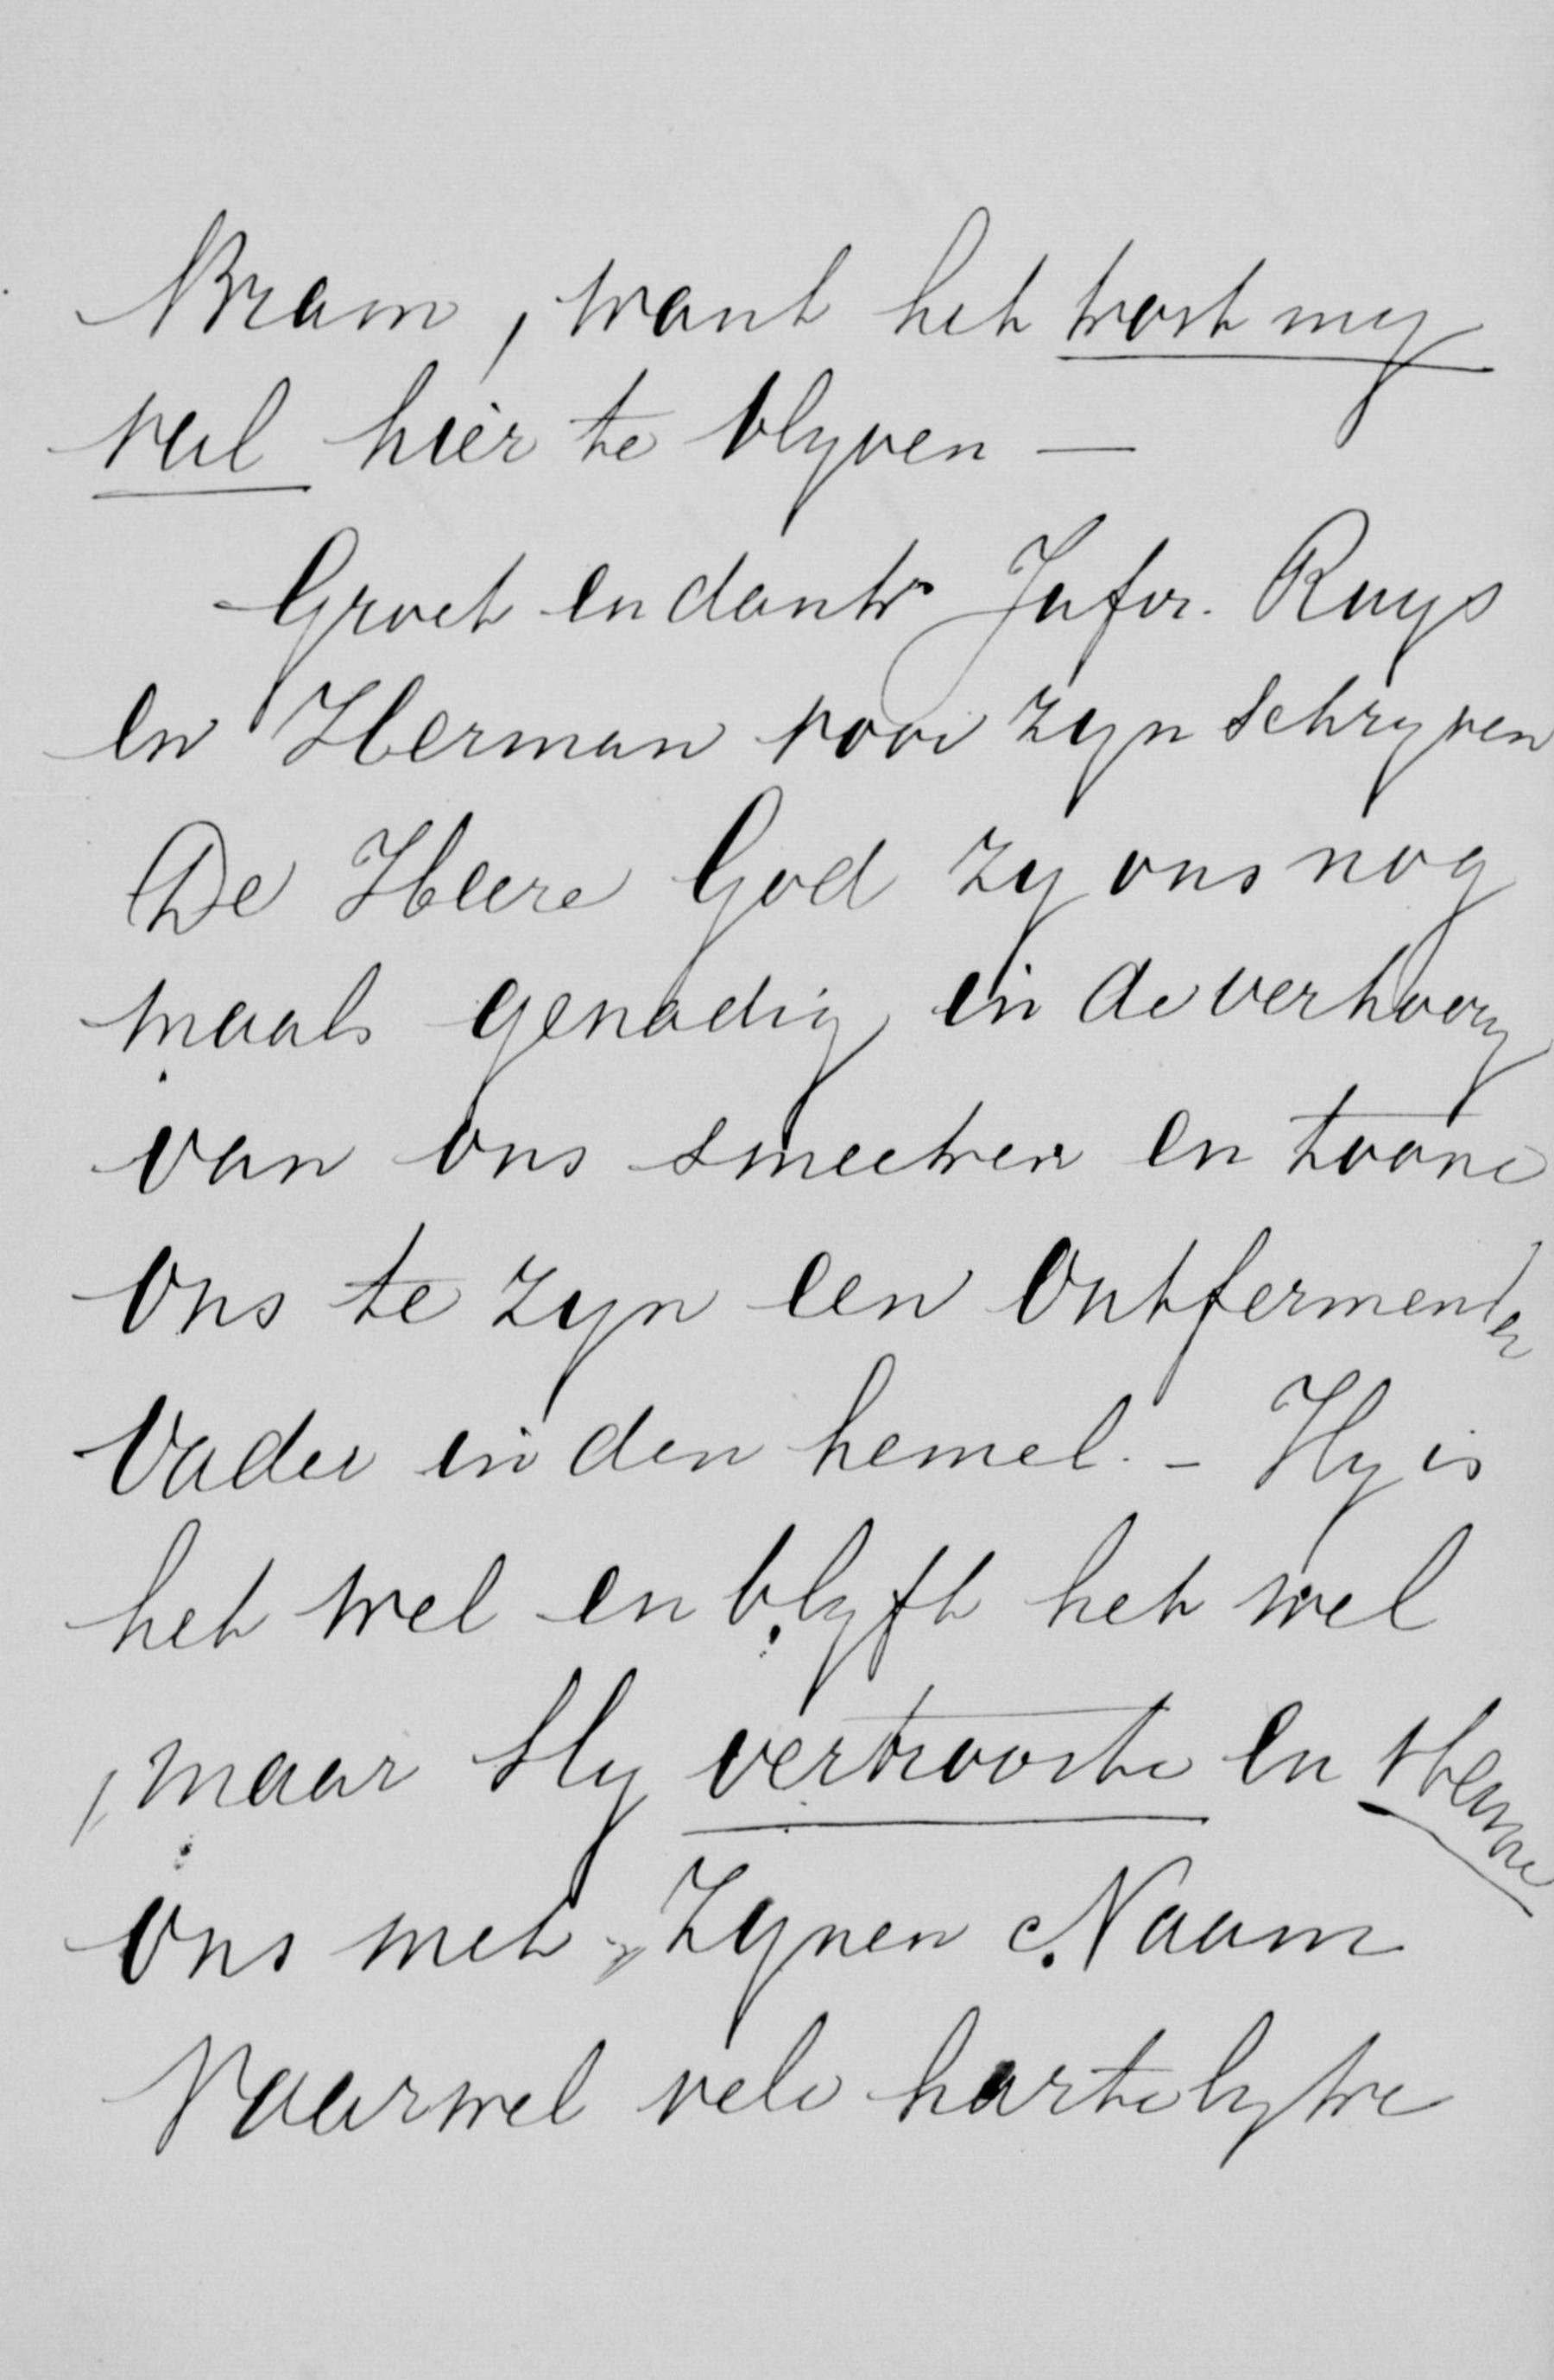 Bram, want het kost my
veel hier te blyven —
Groet en dank Jufvr. Ruys
en Herman voor zyn schryven
De Heere God zy ons nog
maals genadig in de verhoorg
van ons smeeken en toone
ons te zyn een Ontfermender
Vader in den hemel. – Hy is
het wel en blyft het wel
, maar Hy vertrooste en sterke
ons met Zynen Naam
Vaarwel vele hartelyke